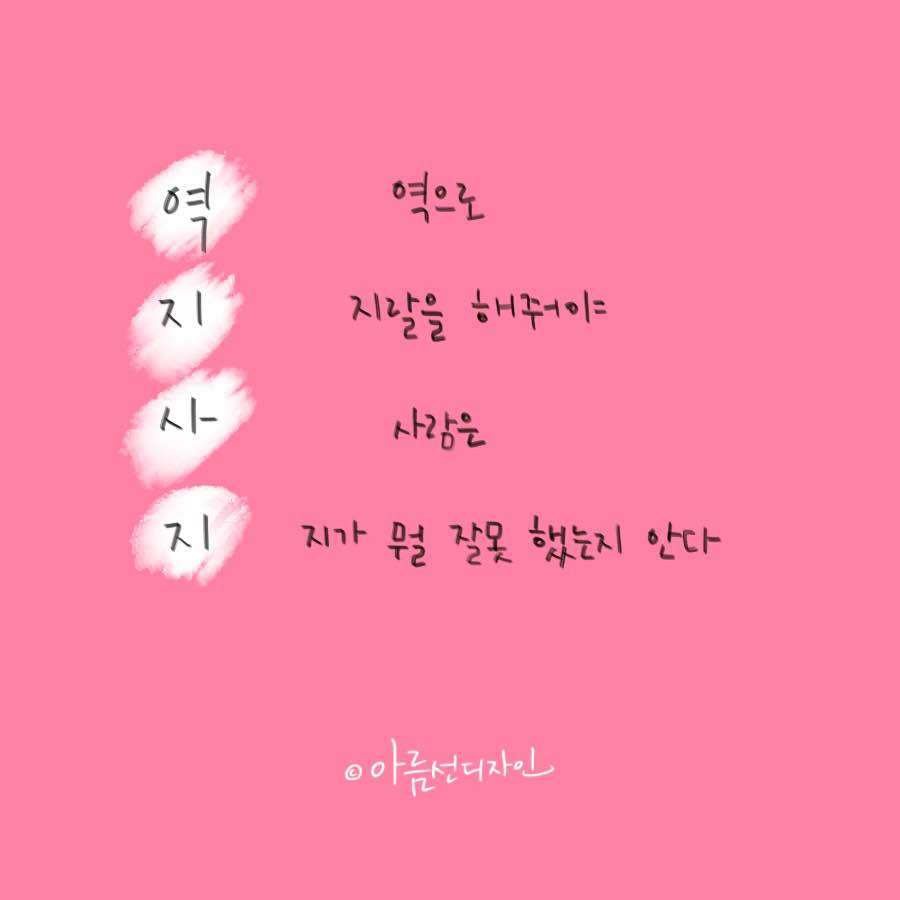 역 역으로
지 지랄을 해줘야
사 사람은
지 지가 뭘 잘못 했는지 안다
© 아름선디자인